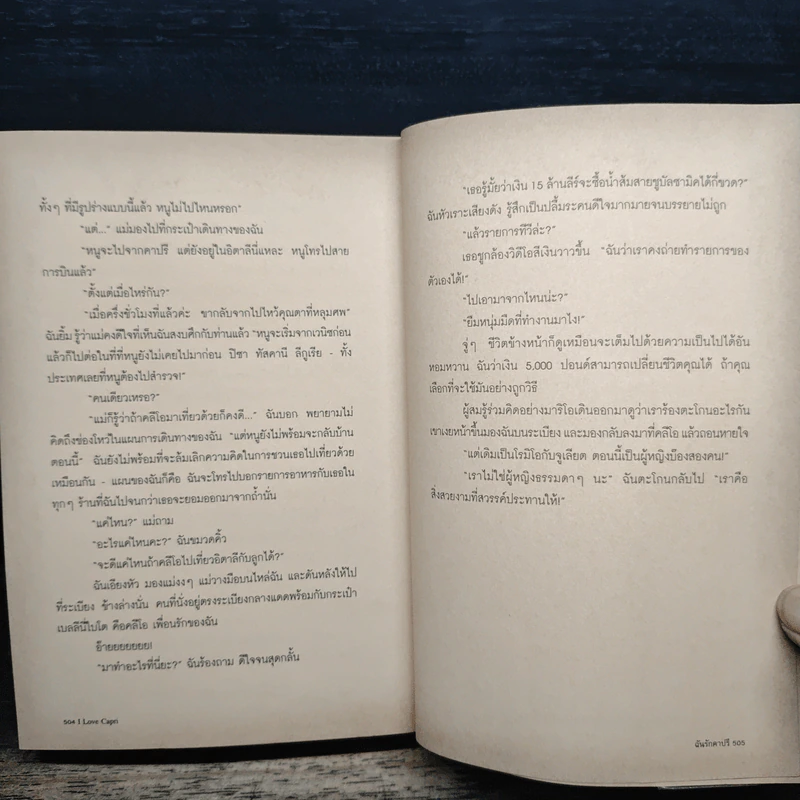 ทั้งๆ ที่มีรูปร่างแบบนี้แล้ว หนูไม่ไปไหนหรอก"
"แต่..." แม่มองไปที่กระเป๋าเดินทางของฉัน
"หนูจะไปจากคาปรี แต่ยังอยู่ในอิตาลีนี่แหละ หนูโทรไปสาย
การบินแล้ว"
"ตั้งแต่เมื่อไหร่กัน?"
"เมื่อครึ่งชั่วโมงที่แล้วค่ะ ขากลับจากไปไหว้คุณตาที่หลุมศพ"
ฉันยิ้ม รู้ว่าแม่คงดีใจที่เห็นฉันสงบศึกกับท่านแล้ว "หนูจะเริ่มจากเวนิซก่อน
แล้วก็ไปต่อในที่ที่หนูยังไม่เคยไปมาก่อน ปิซา ทัสคานี ลีกูเรีย - ทั้ง
ประเทศเลยที่หนูต้องไปสำรวจ!"
"คนเดียวเหรอ?"
"แม่ก็รู้ว่าถ้าคลีโอมาเที่ยวด้วยก็คงดี..." ฉันบอก พยายามไม่
คิดถึงช่องโหว่ในแผนการเดินทางของฉัน "แต่หนูยังไม่พร้อมจะกลับบ้าน
ตอนนี้" ฉันยังไม่พร้อมที่จะล้มเลิกความคิดในการชวนเธอไปเที่ยวด้วย
เหมือนกัน - แผนของฉันก็คือ ฉันจะโทรไปบอกรายการอาหารกับเธอใน
ทุกๆ ร้านที่ฉันไปจนกว่าเธอจะยอมออกมาจากถ้ำนั่น
"แค่ไหน?" แม่ถาม
"อะไรแค่ไหนคะ?" ฉันขมวดคิ้ว
"จะดีแค่ไหนถ้าคลีโอไปเที่ยวอิตาลีกับลูกได้?"
ฉันเอียงหัว มองแม่งงๆ แม่วางมือบนไหล่ฉัน และดันหลังให้ไป
ที่ระเบียง ข้างล่างนั่น คนที่นั่งอยู่ตรงระเบียงกลางแดดพร้อมกับกระเป๋า
เบลลีนีไบโต คือคลีโอ เพื่อนรักของฉัน
อ๊ายยยยยยย!
"มาทำอะไรที่นี่ยะ?" ฉันร้องถาม ดีใจจนสุดกลั้น
504 I Love Capri
"เธอรู้มั้ยว่าเงิน 15 ล้านลีร์จะซื้อน้ำส้มสายชูบัลซามิคได้กี่ขวด?"
ฉันหัวเราะเสียงดัง รู้สึกเป็นปลื้มระคนดีใจมากมายจนบรรยายไม่ถูก
"แล้วรายการทีวีล่ะ?"
เธอชูกล้องวิดีโอสีเงินวาวขึ้น "ฉันว่าเราคงถ่ายทำรายการของ
ตัวเองได้!"
"ไปเอามาจากไหนน่ะ?"
"ยืมหนุ่มมืดที่ทำงานมาไง!"
จู่ๆ ชีวิตข้างหน้าก็ดูเหมือนจะเต็มไปด้วยความเป็นไปได้อัน
หอมหวาน ฉันว่าเงิน 5,000 ปอนด์สามารถเปลี่ยนชีวิตคุณได้ ถ้าคุณ
เลือกที่จะใช้มันอย่างถูกวิธี
ผู้สมรู้ร่วมคิดอย่างมาริโอเดินออกมาดูว่าเราร้องตะโกนอะไรกัน
เขาเงยหน้าขึ้นมองฉันบนระเบียง และมองกลับลงมาที่คลีโอ แล้วถอนหายใจ
"แต่เดิมเป็นโรมิโอกับจูเลียต ตอนนี้เป็นผู้หญิงบ๊องสองคน!"
"เราไม่ใช่ผู้หญิงธรรมดาๆ นะ" ฉันตะโกนกลับไป "เราคือ
สิ่งสวยงามที่สวรรค์ประทานให้!"
ฉันรักคาปรี 505